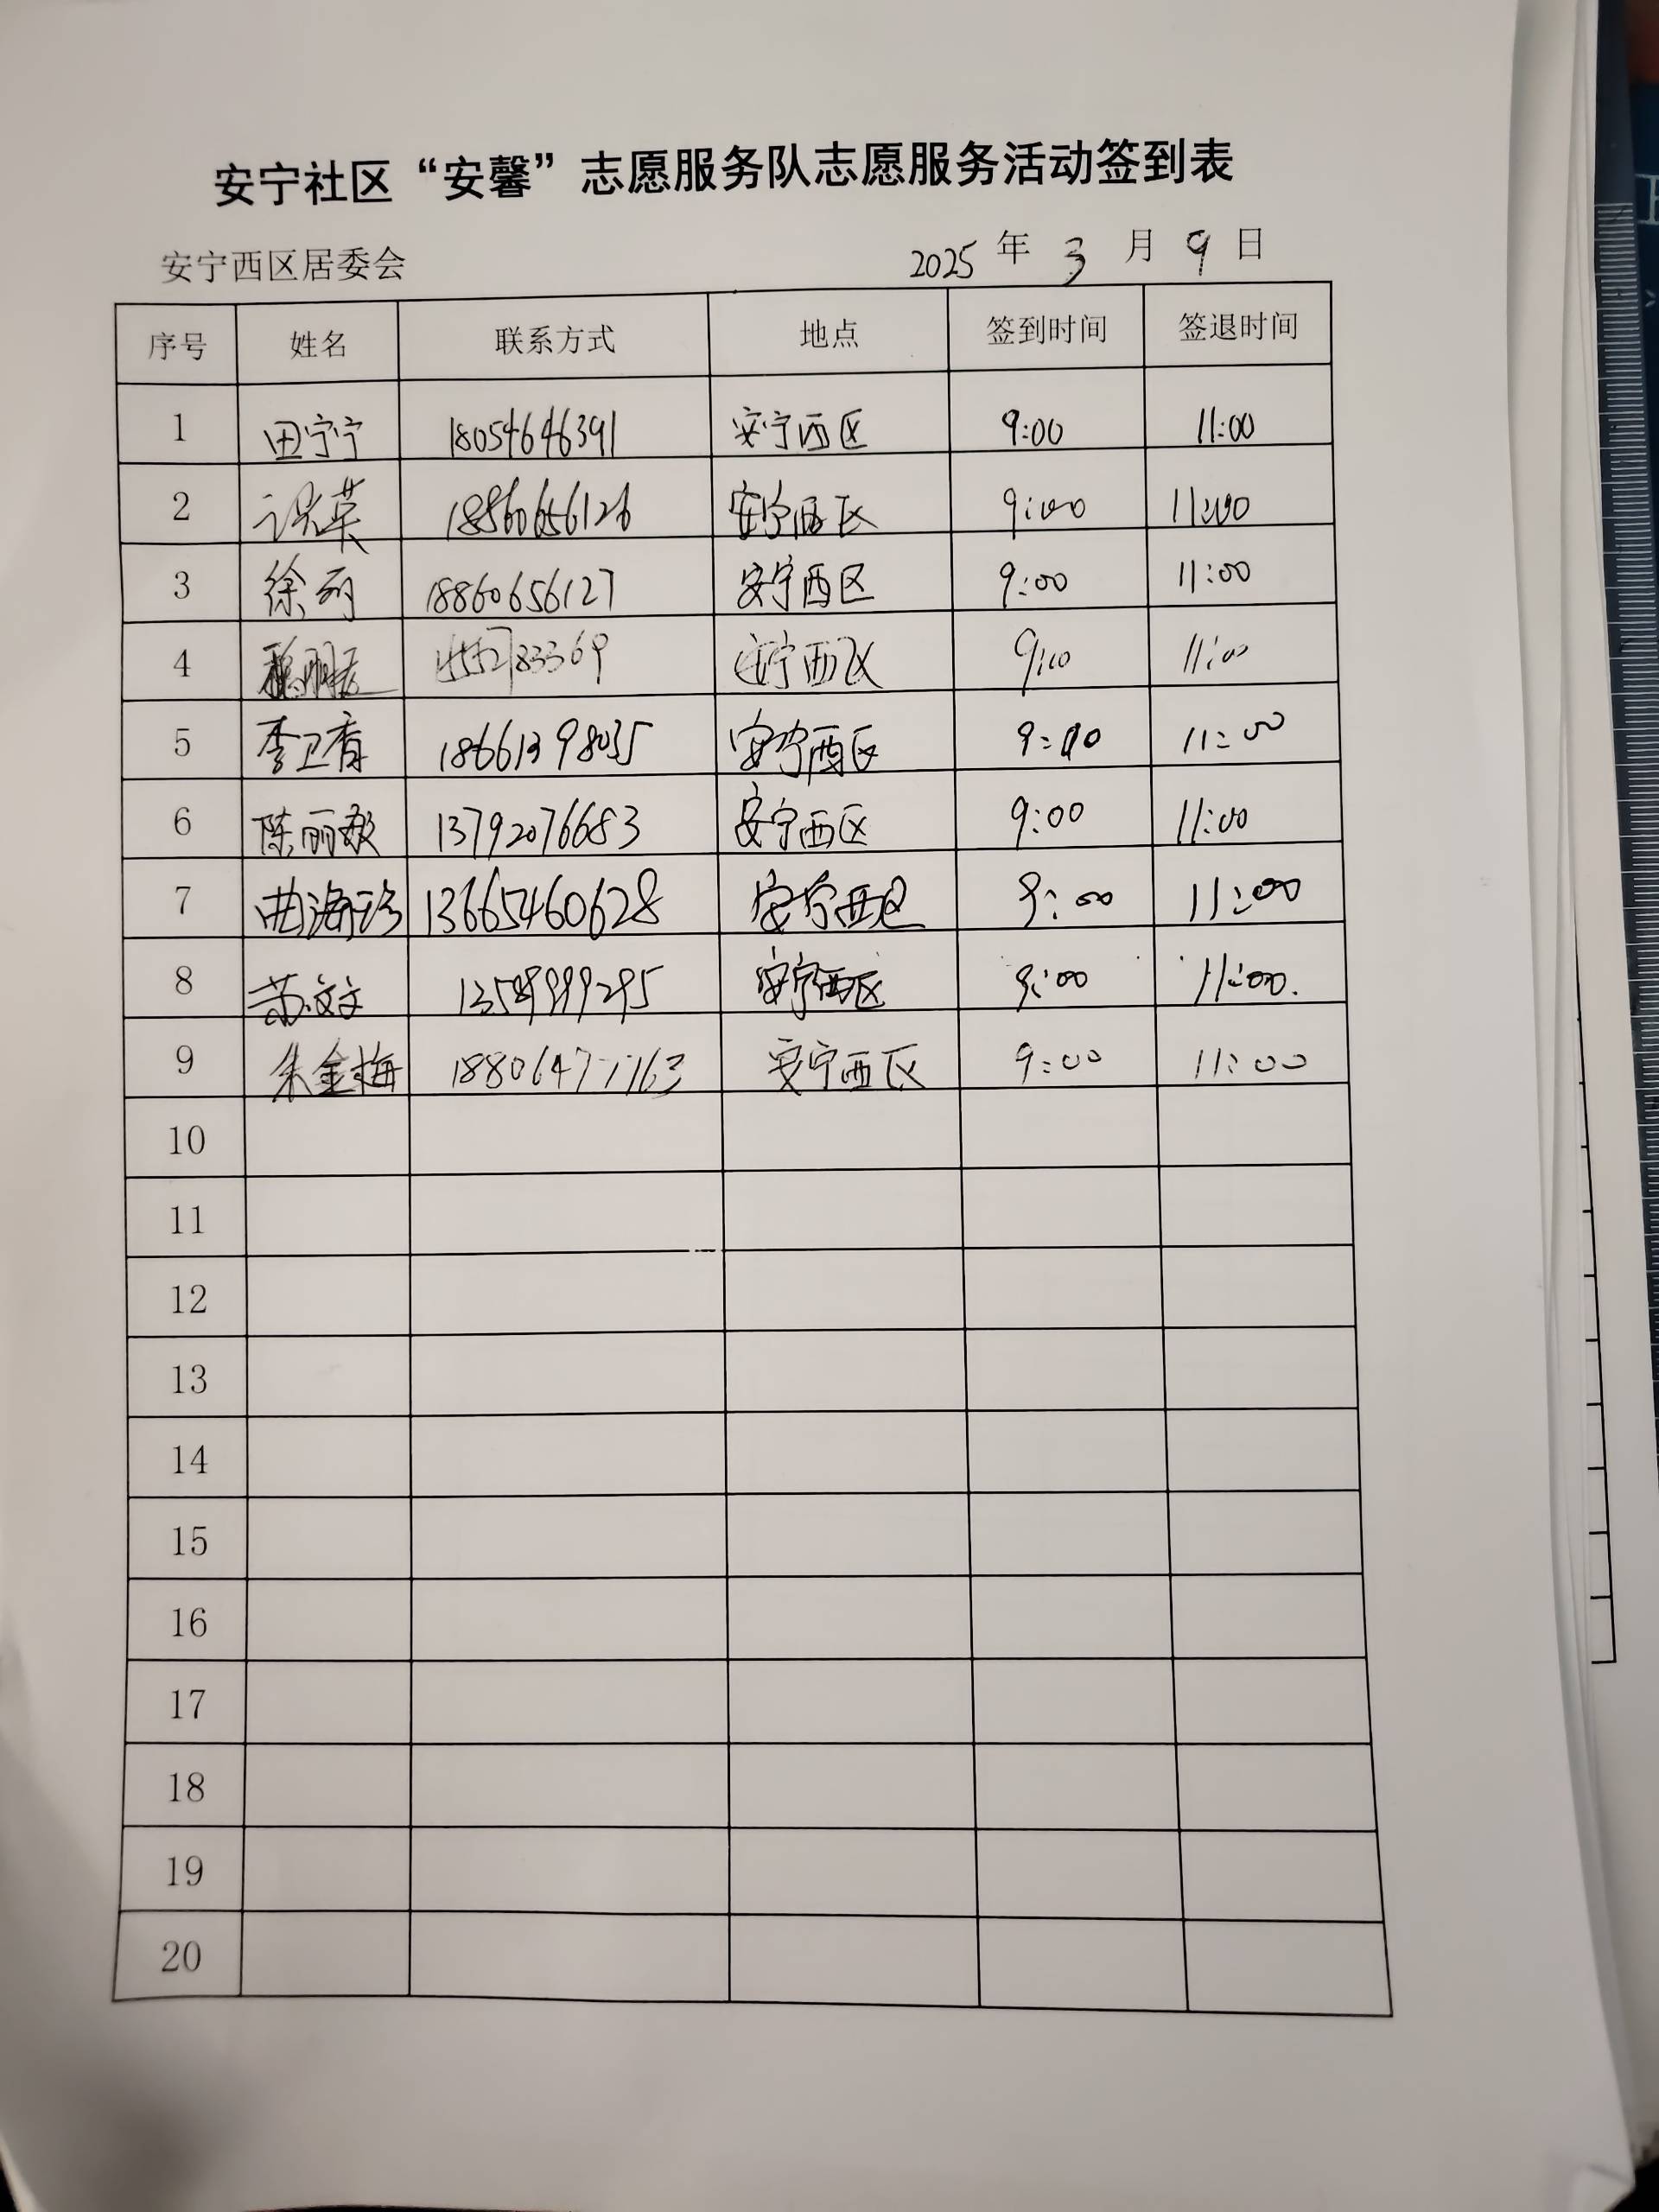 安宁社区“安馨”志愿服务队志愿服务活动签到表
安宁西区居委会 2025 年 3 月 9 日
序号 姓名 联系方式 地点 签到时间 签退时间
1 田宁宁 18054646391 安宁西区 9:00 11:00
2 18560656126 安宁西区 9:00 11:00
3 徐丽 18860656127 安宁西区 9:00 11:00
4 安宁西区 11:00
5 李卫香 18661398035 安宁西区 11:00
6 13792076683 安宁西区 9:00 11:00
7 曲海珍 13665460628 安宁西区 9:00 11:00
8 苏文文 安宁西区 9:00 11:00.
9 朱金梅 18806477163 安宁西区 9:00 11:00
10
11
12
13
14
15
16
17
18
19
20